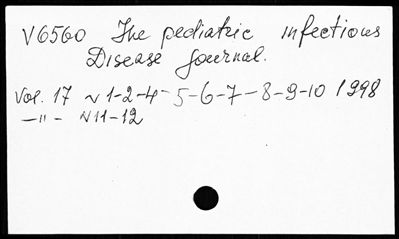 V6560 The pediatric infectious
Disease Journal.
Vol. 17 N 1-2-4-5-6-7-8-9-10 1998
—"— N11-12